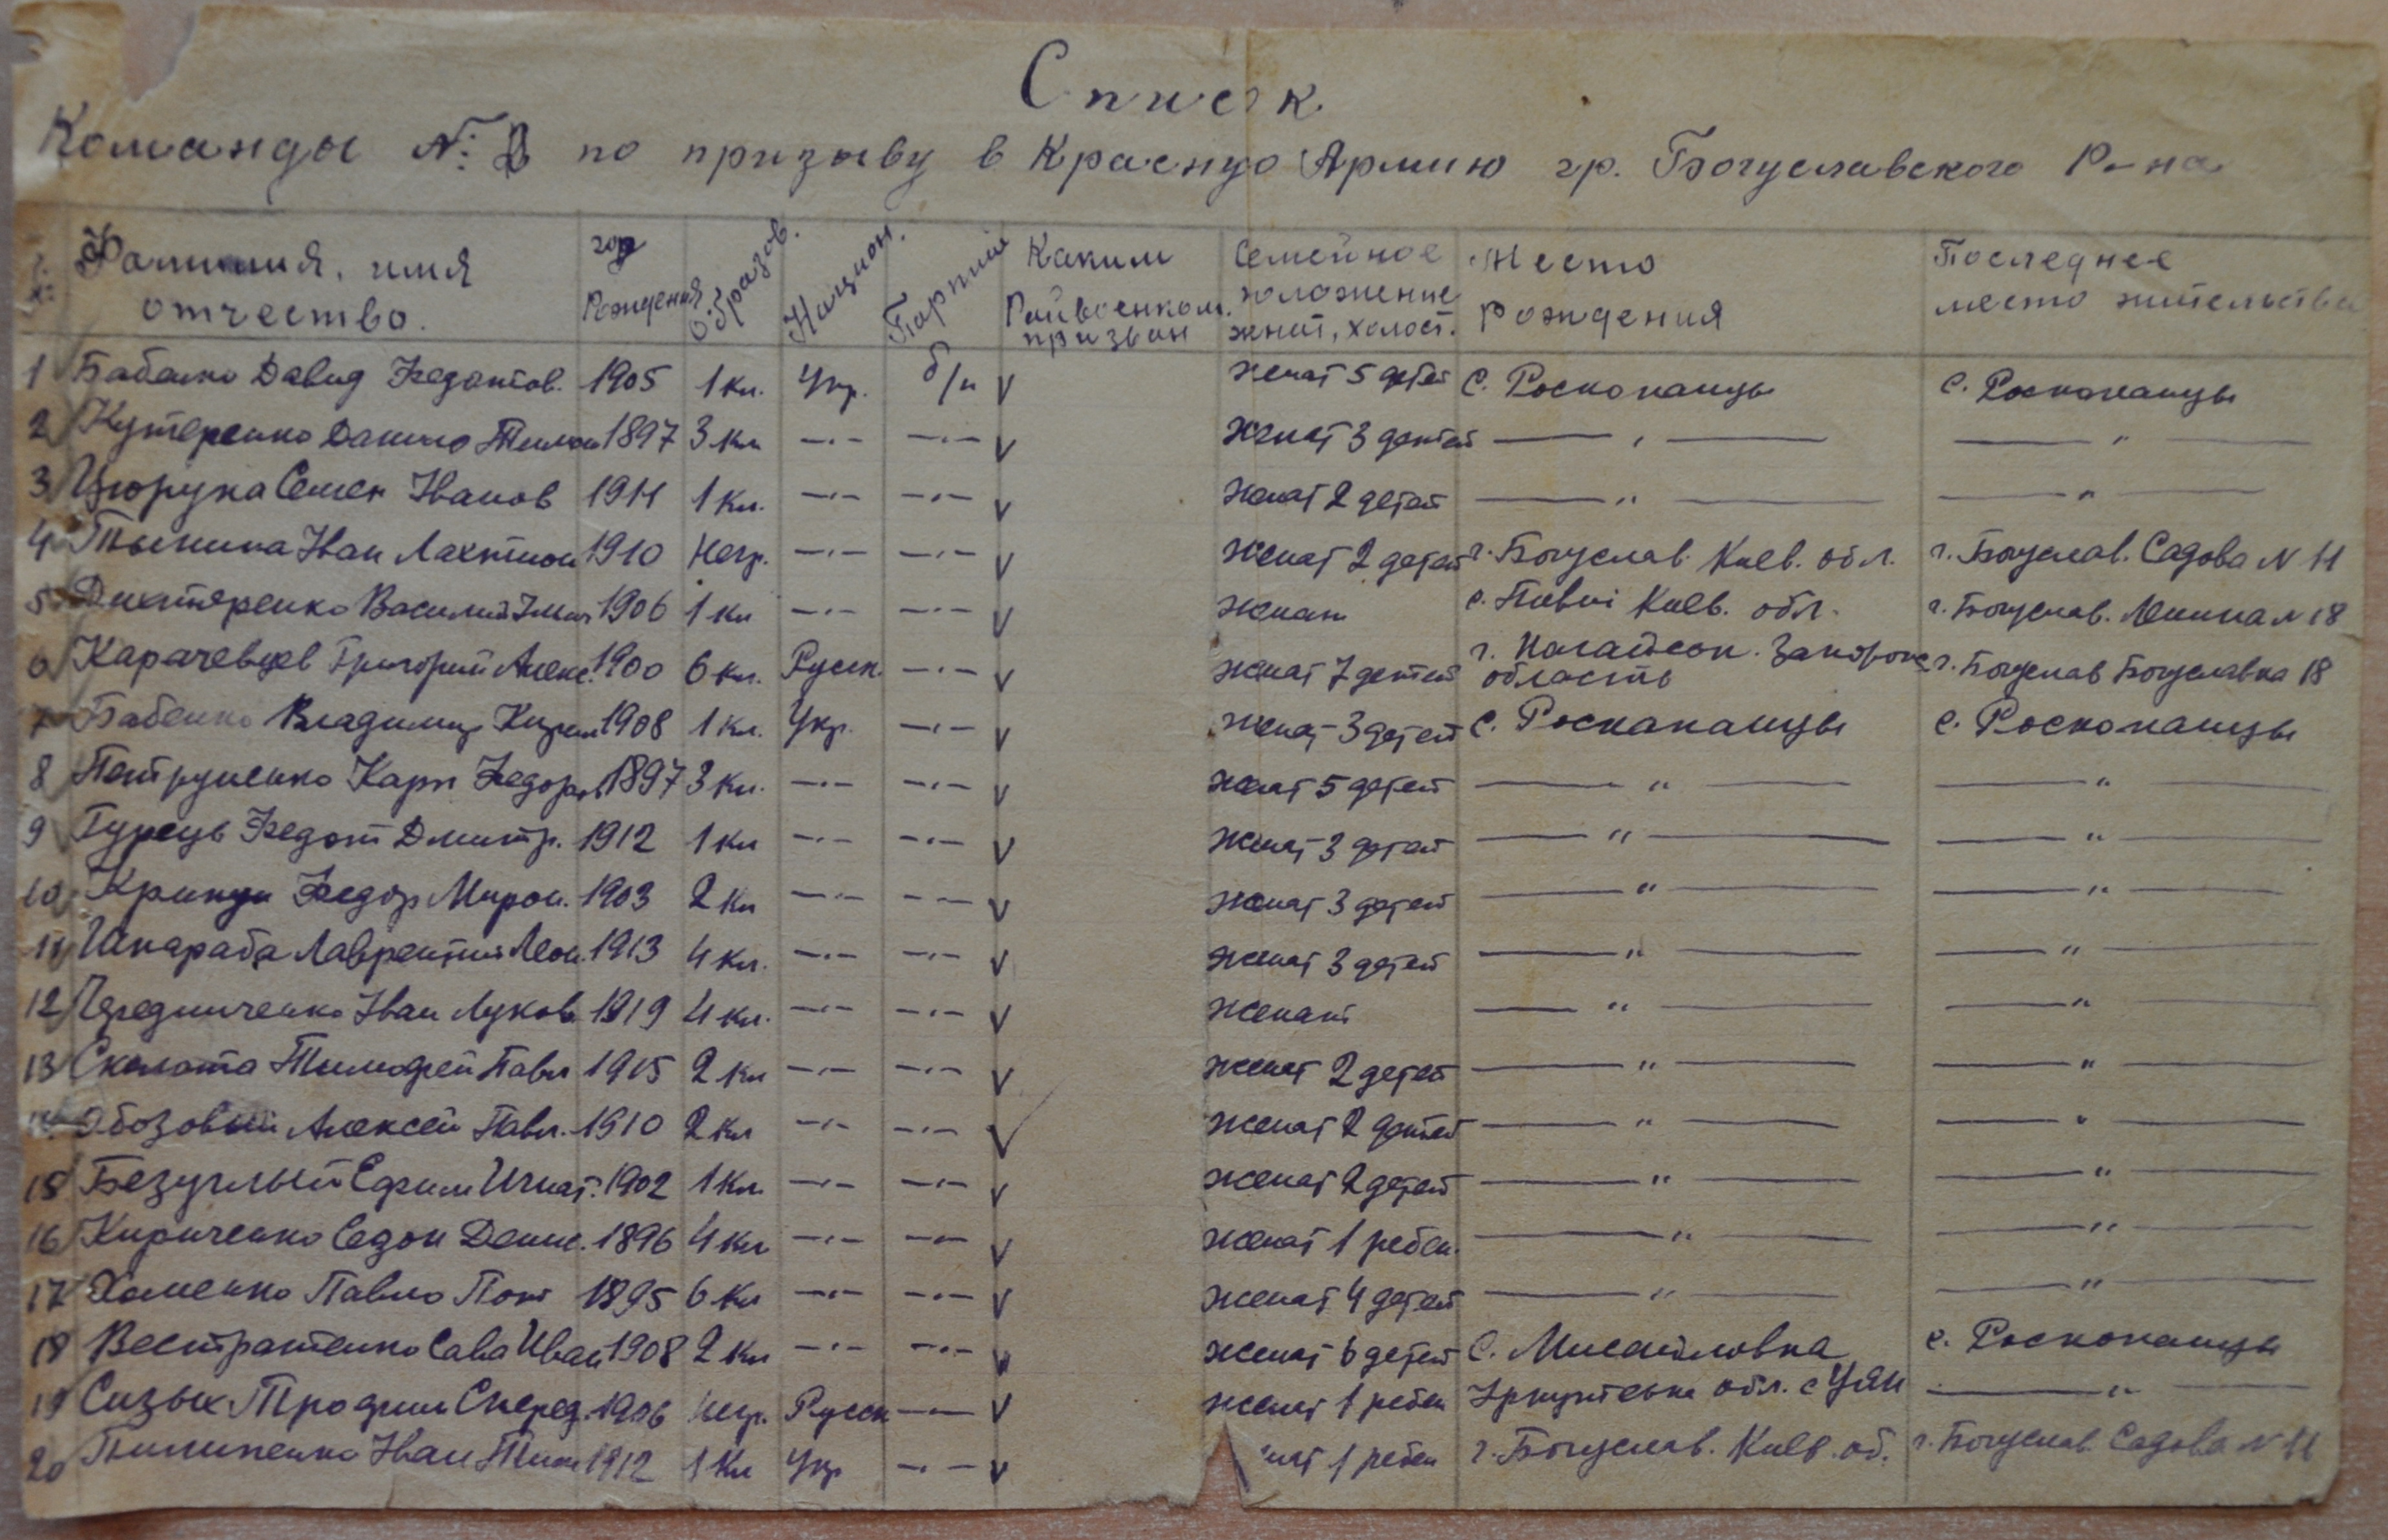 Список
Команды №: 2 по призыву в Красную Армию гр. Богуславского Р-на
Фамилия, имя отчество. | год Рождения | образов. | Национ. | Партий | Каким Райвоенком. призван | Семейное положение женат, холост. | Место рождения | Последнее место жительства
1 Бабенко Давид Федотов. 1905 1 кл. Укр. б/п V женат 5 детей с. Роскопанцы с. Роскопанцы
2 Кутеренко Данило Тимош 1897 3 кл —·— —·— V женат 3 детей — " — — " —
3 Цюрупа Семен Иванов 1911 1 кл. —·— —·— V женат 2 детей — " — — " —
4 Иван 1910 Негр. —·— —·— V женат 2 детей г. Богуслав Киев. обл. г. Богуслав. Садова N 11
5 Дихтяренко Василий 1906 1 кл —·— —·— V женат с. Пивці Киев. обл. г. Богуслав. Ленина N 18
6 Карачевцев Григорий Алекс. 1900 6 кл. Русск. —·— V женат 7 детей г. Запорож область г. Богуслав Богуславка 18
7 Бабенко Владимир Кирил 1908 1 кл. Укр. —·— V женат 3 детей с. Роскапанцы с. Роскопанцы
8 Петрусенко Карп Федоров 1897 3 кл. —·— —·— V женат 5 детей — " — — " —
9 Гурець Федот Дмитр. 1912 1 кл —·— —·— V женат 3 детей — " — — " —
10 Федор Мирон. 1903 2 кл —·— —·— V женат 3 детей — " — — " —
11 Шкараба Лаврентий Леон. 1913 4 кл. —·— —·— V женат 3 детей — " — — " —
12 Чередниченко Иван Луков 1919 4 кл. —·— —·— V женат — " — — " —
13 Сколота Тимофей Павл 1915 2 кл —·— —·— V женат 2 детей — " — — " —
14 Обозовый Алексей Павл. 1910 2 кл —·— —·— V женат 2 детей — " — — " —
15 Безуглый Ефим Игнат. 1902 1 кл. —·— —·— V женат 2 детей — " — — " —
16 Кириченко Сазон Денис. 1896 4 кл —·— —·— V женат 1 ребен. — " — — " —
17 Хоменко Павло 1895 6 кл —·— —·— V женат 4 детей — " — — " —
18 Сава Иван 1908 2 кл —·— —·— V женат 6 детей с. Мисайловка с. Роскопанцы
19 Сизых Трофим Спирид. 1906 негр. Русск —·— V женат 1 ребен Иркутська обл. с Уян — " —
20 Пилипенко Иван Тим 1912 1 кл Укр —·— V 1 ребен г. Богуслав. Киев. об. г. Богуслав Садова N 11